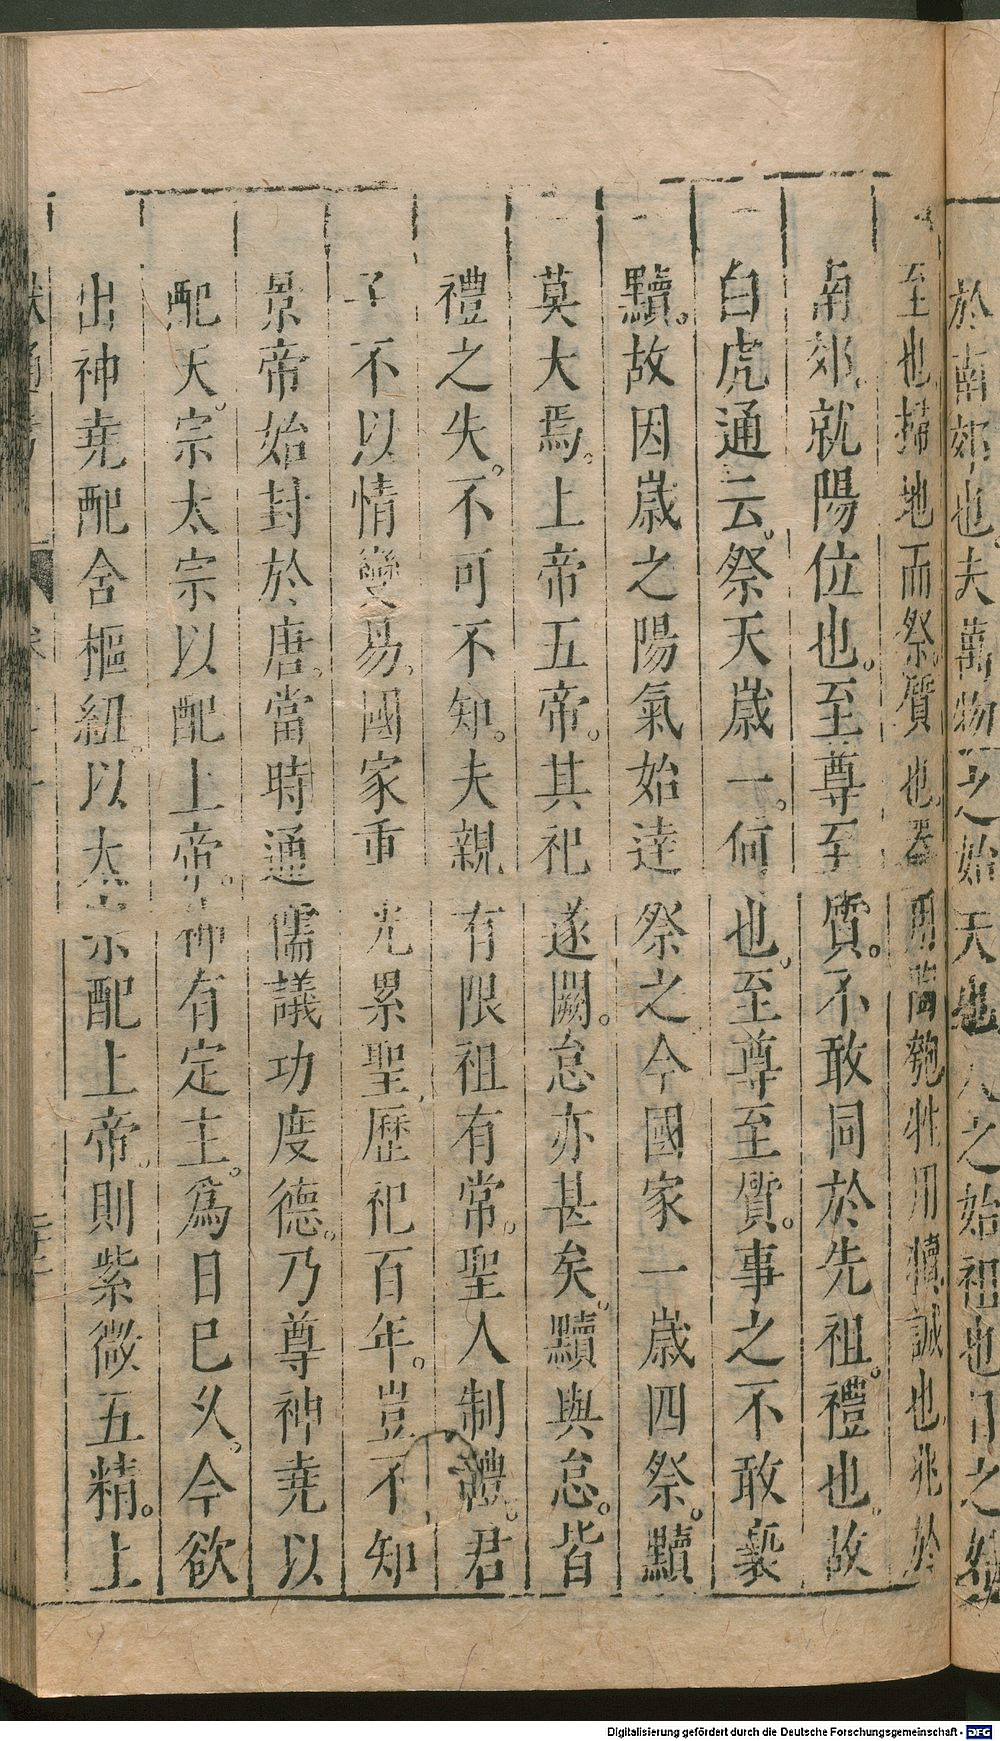 於南郊也夫萬物之始天也人之始祖也日之始
至也。掃地而祭質也。器用陶匏牲用犢誠也。兆於
南郊。就陽位也。至尊至質。不敢同於先祖。禮也。故
白虎通云。祭天歲一。何也。至尊至質。事之不敢褻
黷。故因歲之陽氣始達祭之今國家一歲四祭。黷
莫大焉。上帝五帝。其祀遂闕。怠亦甚矣。黷與怠。皆
禮之失。不可不知。夫親有限祖有常。聖人制禮。君
子不以情變易。國家重光累聖歷祀百年。豈不知
景帝始封於唐。當時通儒議功度德。乃尊神堯以
配天。宗太宗以配上帝。神有定主。爲日已久。今欲
出神堯配含樞紐。以太宗配上帝。則紫微五精。上
Digitalisierung gefördert durch die Deutsche Forschungsgemeinschaft - DFG